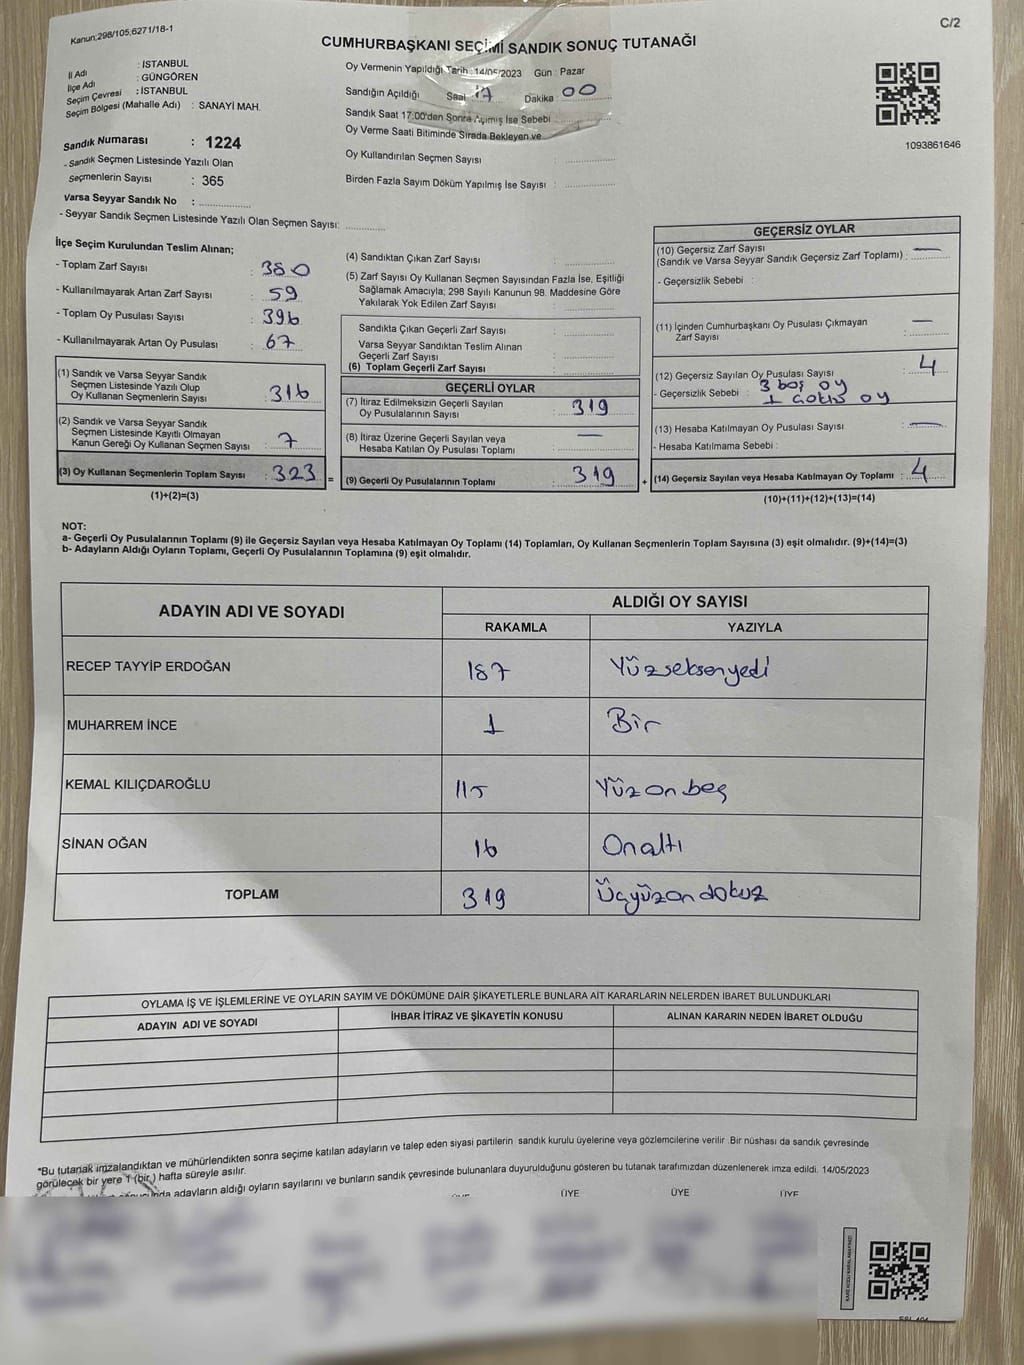 Kanun;298/105,6271/18-1
C/2
CUMHURBAŞKANI SEÇİMİ SANDIK SONUÇ TUTANAĞI
İl Adı : İSTANBUL
İlçe Adı : GÜNGÖREN
Seçim Çevresi : İSTANBUL
Seçim Bölgesi (Mahalle Adı) : SANAYİ MAH.
Sandık Numarası : 1224
- Sandık Seçmen Listesinde Yazılı Olan
Seçmenlerin Sayısı : 365
Varsa Seyyar Sandık No :
- Seyyar Sandık Seçmen Listesinde Yazılı Olan Seçmen Sayısı:
Oy Vermenin Yapıldığı Tarih : 14/05/2023 Gün : Pazar
Sandığın Açıldığı Saat : 17 Dakika : 00
Sandık Saat 17.00'den Sonra Açılmış İse Sebebi :
Oy Verme Saati Bitiminde Sırada Bekleyen ve
Oy Kullandırılan Seçmen Sayısı :
Birden Fazla Sayım Döküm Yapılmış İse Sayısı :
1093861646
İlçe Seçim Kurulundan Teslim Alınan;
- Toplam Zarf Sayısı : 380
- Kullanılmayarak Artan Zarf Sayısı : 59
- Toplam Oy Pusulası Sayısı : 396
- Kullanılmayarak Artan Oy Pusulası : 67
(1) Sandık ve Varsa Seyyar Sandık
Seçmen Listesinde Yazılı Olup
Oy Kullanan Seçmenlerin Sayısı : 316
(2) Sandık ve Varsa Seyyar Sandık
Seçmen Listesinde Kayıtlı Olmayan
Kanun Gereği Oy Kullanan Seçmen Sayısı : 7
(3) Oy Kullanan Seçmenlerin Toplam Sayısı : 323 =
(1)+(2)=(3)
(4) Sandıktan Çıkan Zarf Sayısı :
(5) Zarf Sayısı Oy Kullanan Seçmen Sayısından Fazla İse, Eşitliği
Sağlamak Amacıyla; 298 Sayılı Kanunun 98. Maddesine Göre
Yakılarak Yok Edilen Zarf Sayısı :
Sandıkta Çıkan Geçerli Zarf Sayısı :
Varsa Seyyar Sandıktan Teslim Alınan
Geçerli Zarf Sayısı :
(6) Toplam Geçerli Zarf Sayısı :
GEÇERLİ OYLAR
(7) İtiraz Edilmeksizin Geçerli Sayılan
Oy Pusulalarının Sayısı : 319
(8) İtiraz Üzerine Geçerli Sayılan veya
Hesaba Katılan Oy Pusulası Toplamı : —
(9) Geçerli Oy Pusulalarının Toplamı : 319 +
GEÇERSİZ OYLAR
(10) Geçersiz Zarf Sayısı
(Sandık ve Varsa Seyyar Sandık Geçersiz Zarf Toplamı) : —
- Geçersizlik Sebebi :
(11) İçinden Cumhurbaşkanı Oy Pusulası Çıkmayan
Zarf Sayısı : —
(12) Geçersiz Sayılan Oy Pusulası Sayısı : 4
- Geçersizlik Sebebi : 3 boş oy
1 oy
(13) Hesaba Katılmayan Oy Pusulası Sayısı : —
- Hesaba Katılmama Sebebi :
(14) Geçersiz Sayılan veya Hesaba Katılmayan Oy Toplamı : 4
(10)+(11)+(12)+(13)=(14)
NOT:
a- Geçerli Oy Pusulalarının Toplamı (9) ile Geçersiz Sayılan veya Hesaba Katılmayan Oy Toplamı (14) Toplamları, Oy Kullanan Seçmenlerin Toplam Sayısına (3) eşit olmalıdır. (9)+(14)=(3)
b- Adayların Aldığı Oyların Toplamı, Geçerli Oy Pusulalarının Toplamına (9) eşit olmalıdır.
ADAYIN ADI VE SOYADI ALDIĞI OY SAYISI
RAKAMLA YAZIYLA
RECEP TAYYİP ERDOĞAN 187 Yüzseksenyedi
MUHARREM İNCE 1 Bir
KEMAL KILIÇDAROĞLU 115 Yüzonbeş
SİNAN OĞAN 16 Onaltı
TOPLAM 319 Üçyüzondokuz
OYLAMA İŞ VE İŞLEMLERİNE VE OYLARIN SAYIM VE DÖKÜMÜNE DAİR ŞİKAYETLERLE BUNLARA AİT KARARLARIN NELERDEN İBARET BULUNDUKLARI
ADAYIN ADI VE SOYADI İHBAR İTİRAZ VE ŞİKAYETİN KONUSU ALINAN KARARIN NEDEN İBARET OLDUĞU
*Bu tutanak imzalandıktan ve mühürlendikten sonra seçime katılan adayların ve talep eden siyasi partilerin sandık kurulu üyelerine veya gözlemcilerine verilir .Bir nüshası da sandık çevresinde
görülecek bir yere 1 (bir) hafta süreyle asılır.
adayların aldığı oyların sayılarını ve bunların sandık çevresinde bulunanlara duyurulduğunu gösteren bu tutanak tarafımızdan düzenlenerek imza edildi. 14/05/2023
ÜYE ÜYE ÜYE